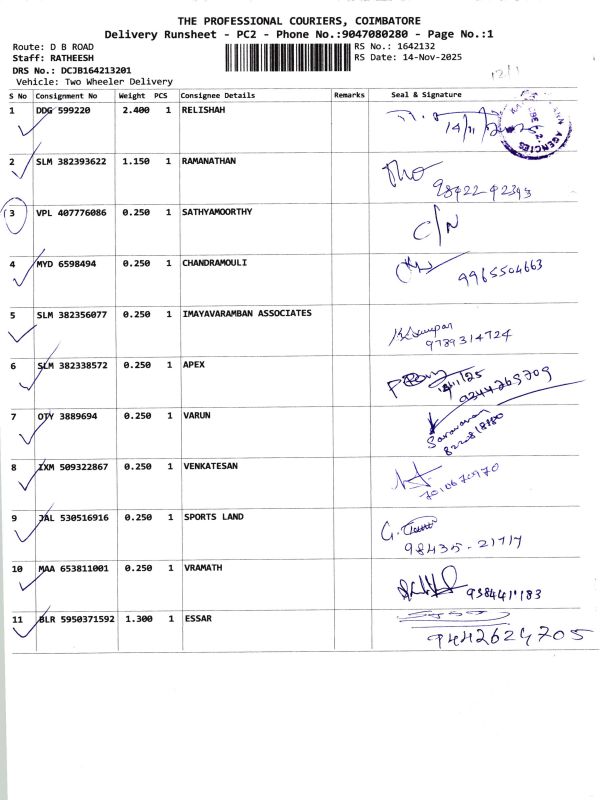 THE PROFESSIONAL COURIERS, COIMBATORE
Delivery Runsheet - PC2 - Phone No.:9047080280 - Page No.:1
Route: D B ROAD RS No.: 1642132
Staff: RATHEESH RS Date: 14-Nov-2025
DRS No.: DCJB164213201
Vehicle: Two Wheeler Delivery 12/1
S No Consignment No Weight PCS Consignee Details Remarks Seal & Signature
1 DDG 599220 2.400 1 RELISHAH
14/11 AGENCIES
2 SLM 382393622 1.150 1 RAMANATHAN
98422-42393
3 VPL 407776086 0.250 1 SATHYAMOORTHY
C/N
4 MYD 6598494 0.250 1 CHANDRAMOULI
9965504663
5 SLM 382356077 0.250 1 IMAYAVARAMBAN ASSOCIATES
9789314724
6 SLM 382338572 0.250 1 APEX
14/11/25
9244269709
7 OTY 3889694 0.250 1 VARUN
Saravanan
8 IXM 509322867 0.250 1 VENKATESAN
7010670970
9 JAL 530516916 0.250 1 SPORTS LAND
98435-21717
10 MAA 653811001 0.250 1 VRAMATH
9384411183
11 BLR 5950371592 1.300 1 ESSAR
9442624705